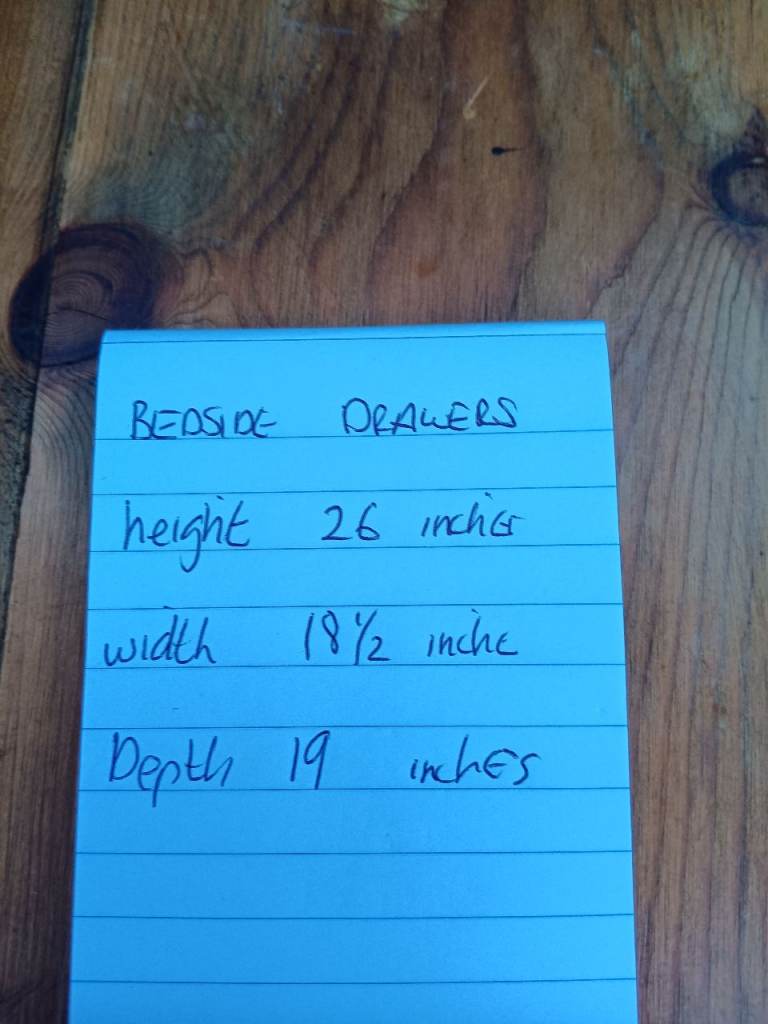 BEDSIDE DRAWERS
height 26 inches
width 18 1/2 inche
Depth 19 inches